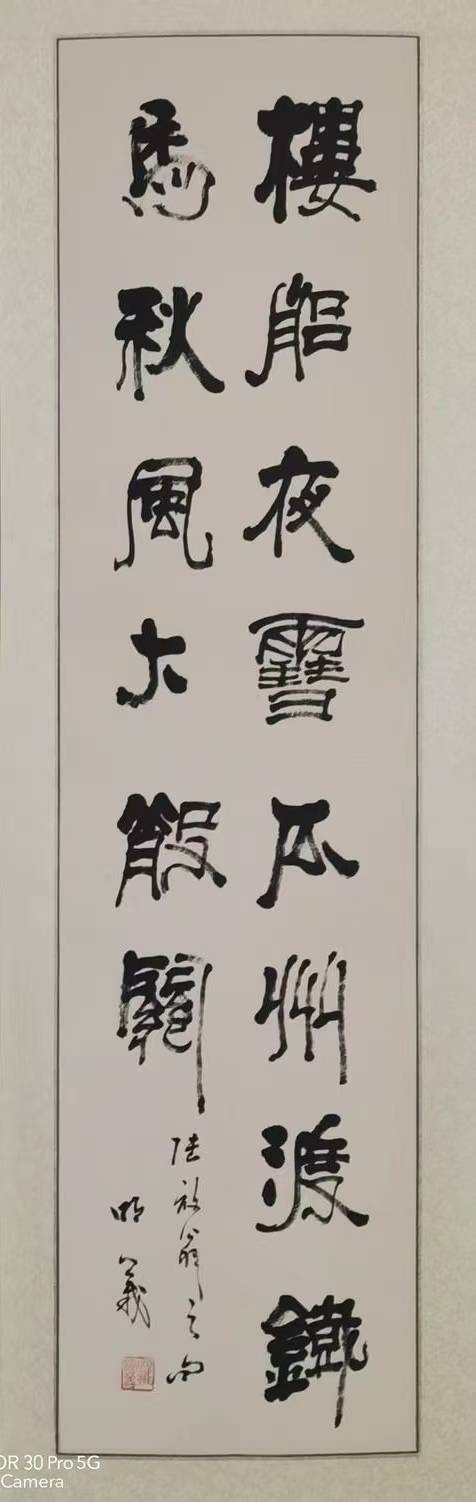 樓船夜雪瓜州渡鐵
馬秋風大散關
陆放翁之句
明義
OR 30 Pro 5G
Camera